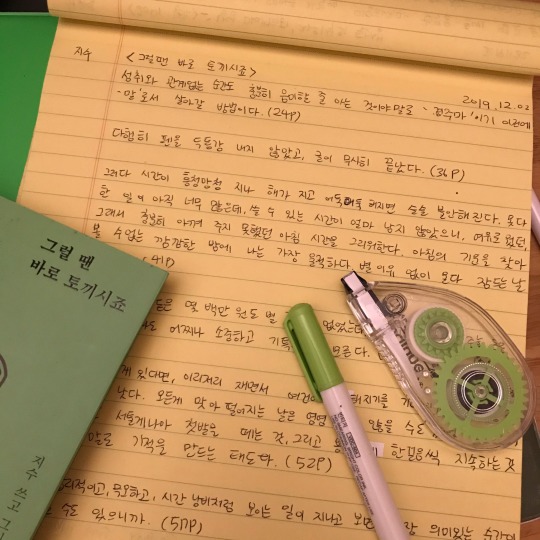 지수 <그럴 땐 바로 토끼시죠>
성취와 관계없는 순간도 충분히 음미할 줄 아는 것이야말로 - 경주마'이기 이전에
2019.12.02
-말'로서 살아갈 방법이다. (24p)
다행히 펜을 득득감 내지 않았고, 글이 무사히 끝났다. (36p)
그러다 시간이 흥청망청 지나 해가 지고 어둑어둑해지면 슬슬 불안해진다. 못다
한 일이 아직 너무 많은데, 쓸 수 있는 시간이 얼마 남지 않았으니. 여유로웠던,
그래서 충분히 아껴 주지 못했던 아침 시간을 그리워한다. 아침의 기운을 찾아
볼 수 없는 캄캄한 밤에 나는 가장 울적하다. 별 이유 없이 온다 잠드는 날
몇 백만 원도 벌 없었는
어찌나 소중하고 기특 모른다.
있다면, 이리저리 재면서 여건이 해지기를
났다. 모든게 맞아 떨어지는 날은 영영 않을 수도
서툴게나마 첫발을 떼는 것, 그리고 한걸음씩 지속하는 것
말로 기적을 만드는 태도다. (52p)
적이고, 무모하고, 시간 낭비처럼 보이는 일이 지나고 보면 장 의미있는 순간
수도 있으니까. (57p)
그럴 땐
바로 토끼시죠
지수 쓰고 그